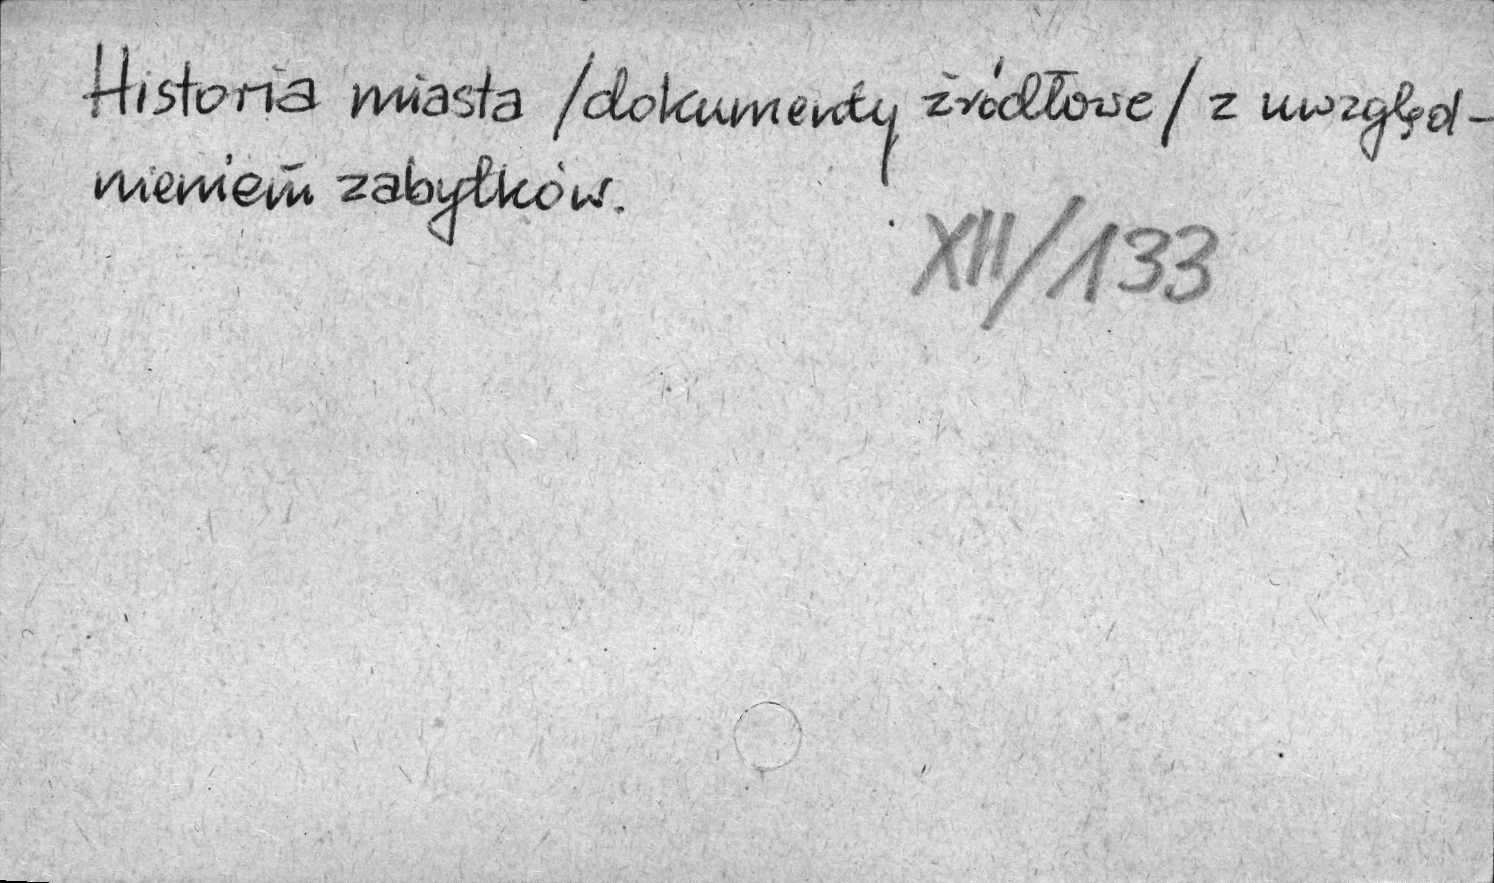 Historia miasta /dokumenty źródłowe/ z uwzględ-
nieniem zabytków.
XII/133